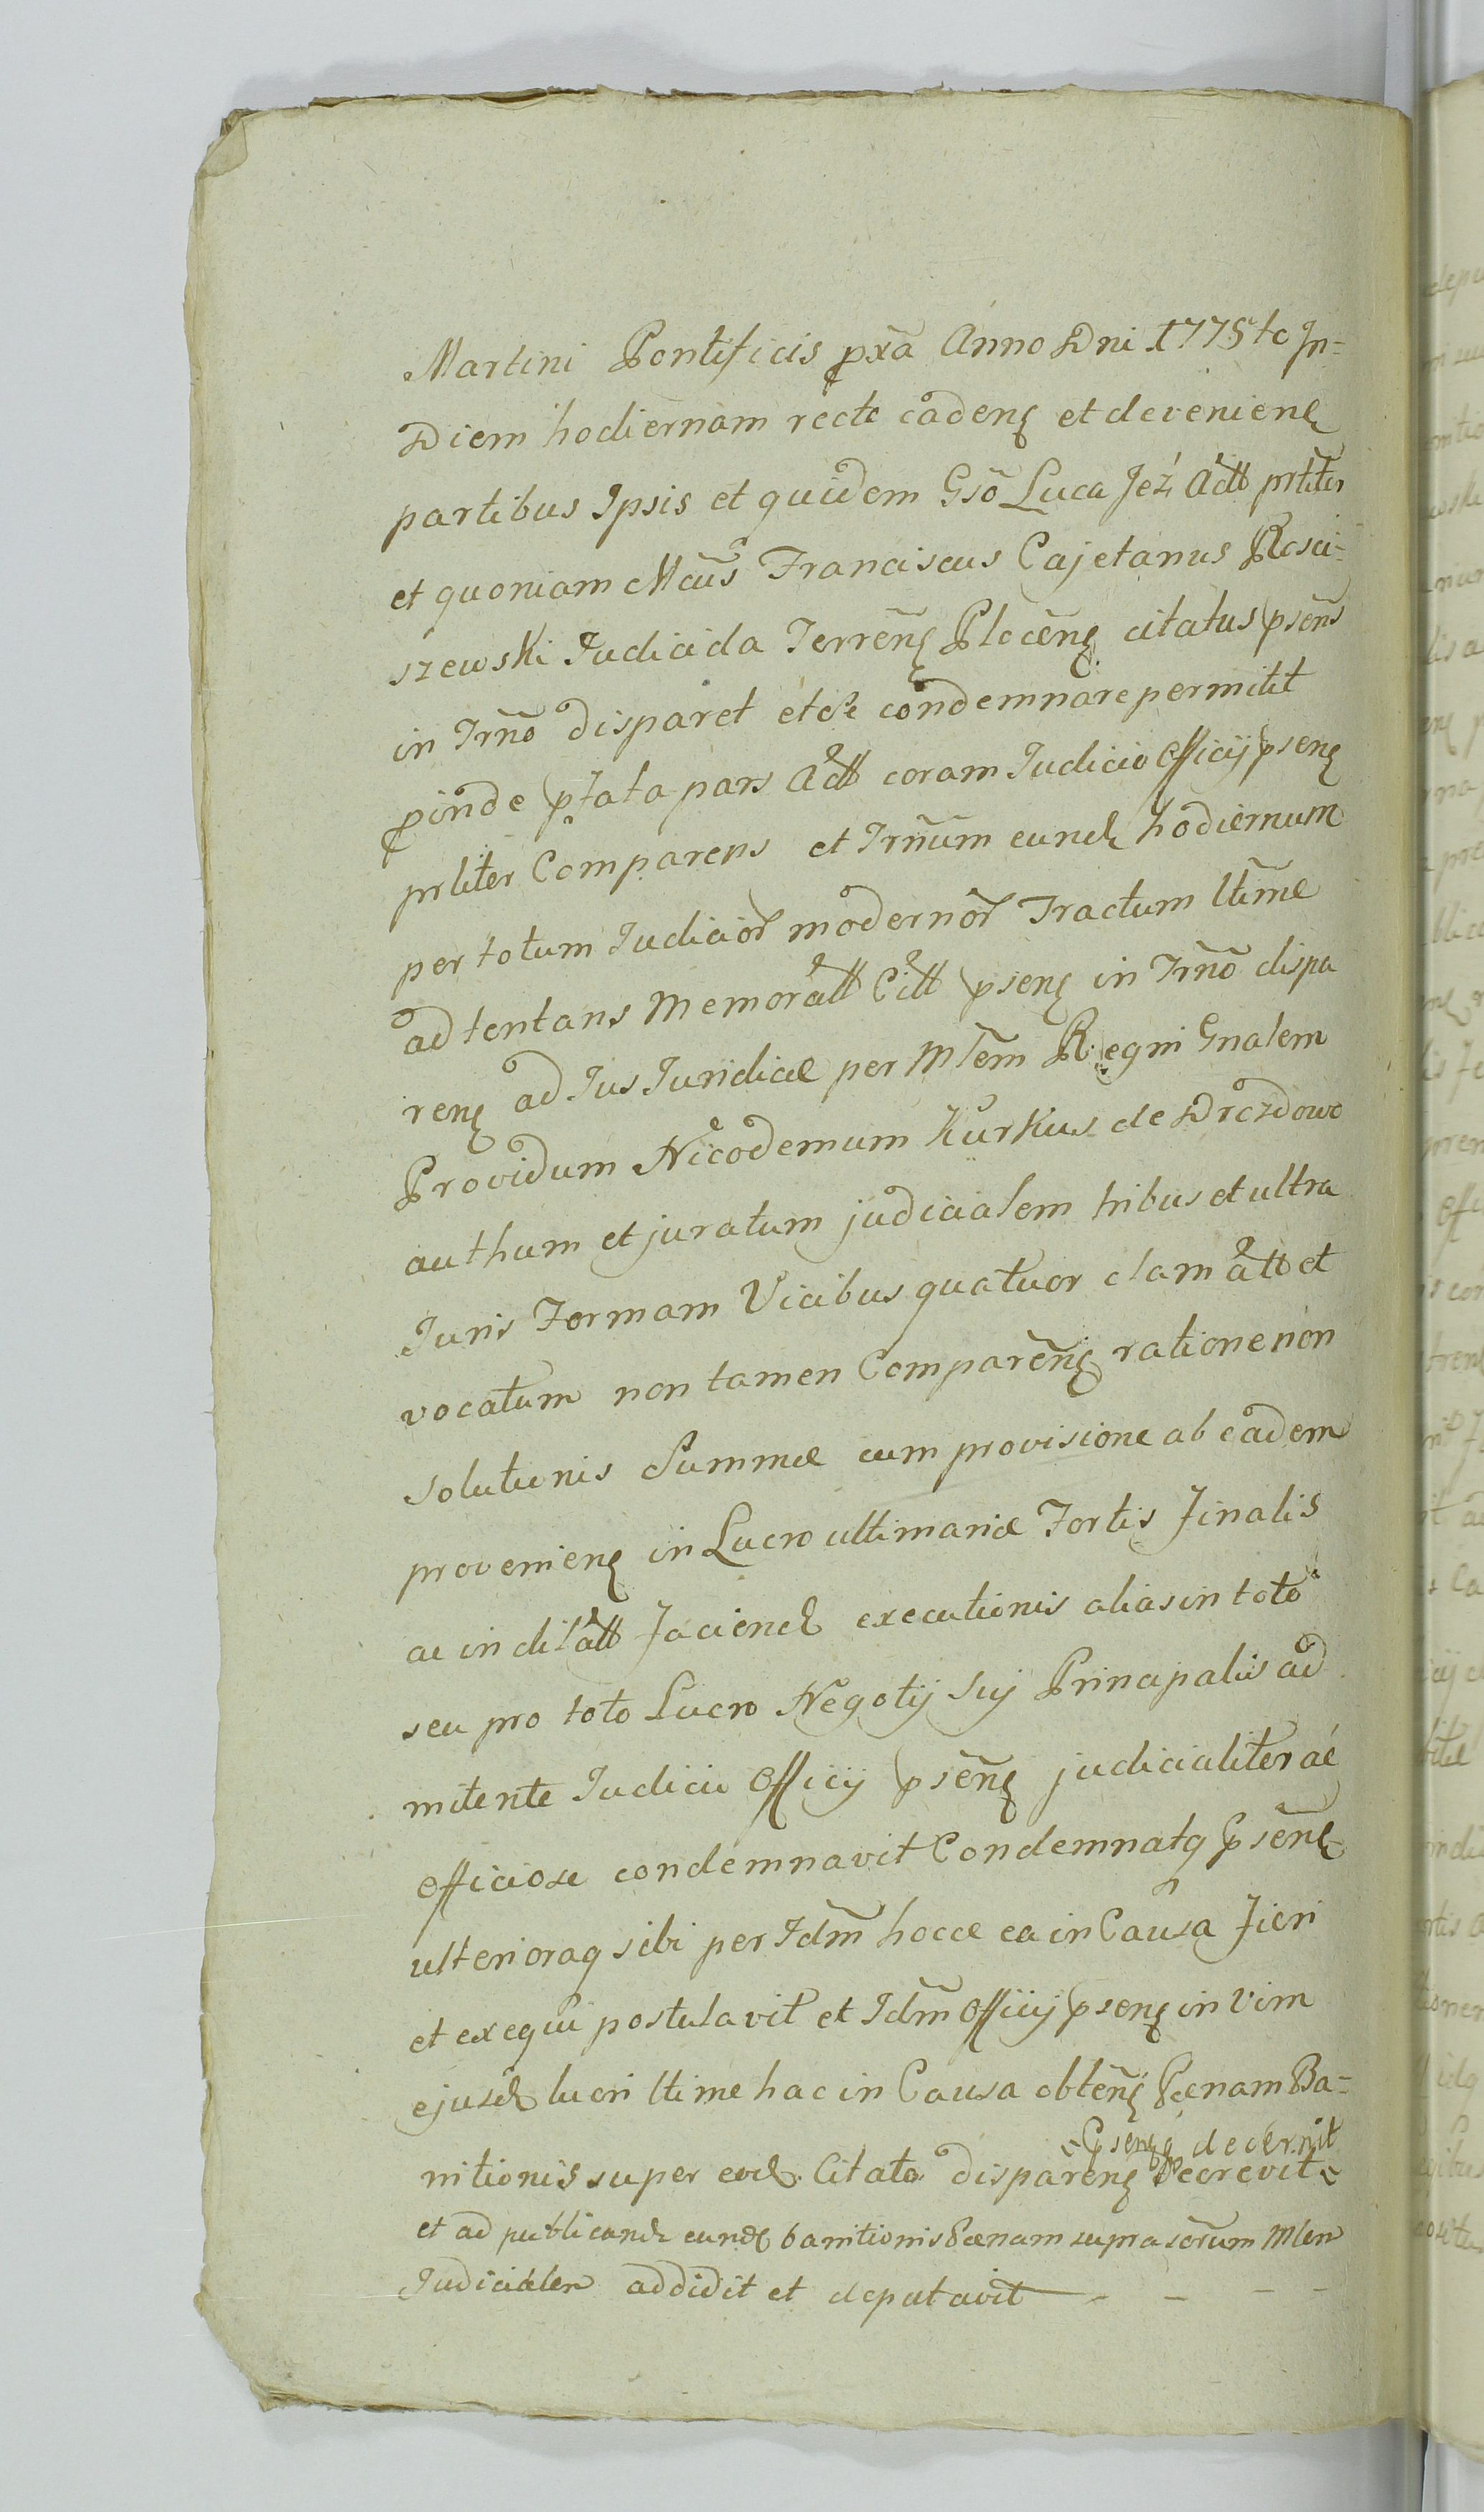 Martini Pontificis pxa Anno Dni 1775to In=
Diem hodiernam recte cadenę et devenienę
partibus Ipsis et quidem Gsõ Luca Jeż Actt prltter
et quoniam Mcus Franciscus Cajetanus Rosci=
szewski Judicida Terrenę Plocenę citatus psens
in Trño disparet et se condemnare permitit
pinde ptata pars Actt coram Judicio Officij psenę
prliter Comparens et Trñum eund hodiernum
per totum Judicior modernor Tractum ltime
adtentans Memoratt Citt psenę in Trño dispa
renę ad Jus Juridice per Mlem Regni Gnalem
Providum Nicodemum Kurkus de Drozdowo
authum et juratum judicialem tribus et ultra
Juris Formam Vicibus quatuor clamatt et
vocatum non tamen Comparenę ratione non
solutionis Summæ cum provisione ab eadem
provenienę in Lucro ultimariæ Fortis Finalis
ac in dilatt Faciend executionis alias in toto
seu pro toto Lucro Negotij Sui Principalis ad
mitente Judicio Officij psenę judicialiter ac
officiose condemnavit Condemnatq psenę
ulterioraq sibi per Idm hocce ea in Causa Fieri
et exequi postulavit et Idm Officij psenę in Vim
ejusd lucri ltime hac in Causa obtenę Pœnam Ba=
psenę decernit
nitionis super eod Citato disparenę decrevit
et ad publicand eund banitionis Pœnam suprascrum Mlem
Judicialem addidit et deputavit — — — —